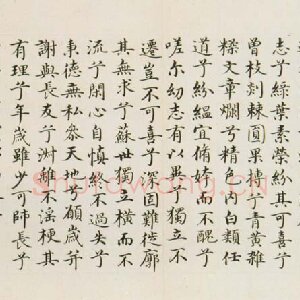 志兮綠葉素榮紛其可喜兮
曾枝剡棘圓果摶兮青黃雜
糅文章爛兮精色內白類任
道兮紛緼宜脩姱而不醜兮
嗟尔幼志有以異兮獨立不
遷豈不可喜兮深固難徙廓
其無求兮蘇世獨立橫而不
流兮閉心自慎終不過失兮
秉德無私叅天地兮願歲并
謝與長友兮淑離不淫梗其
有理兮年歲雖少可師長兮
Shufawang.cn